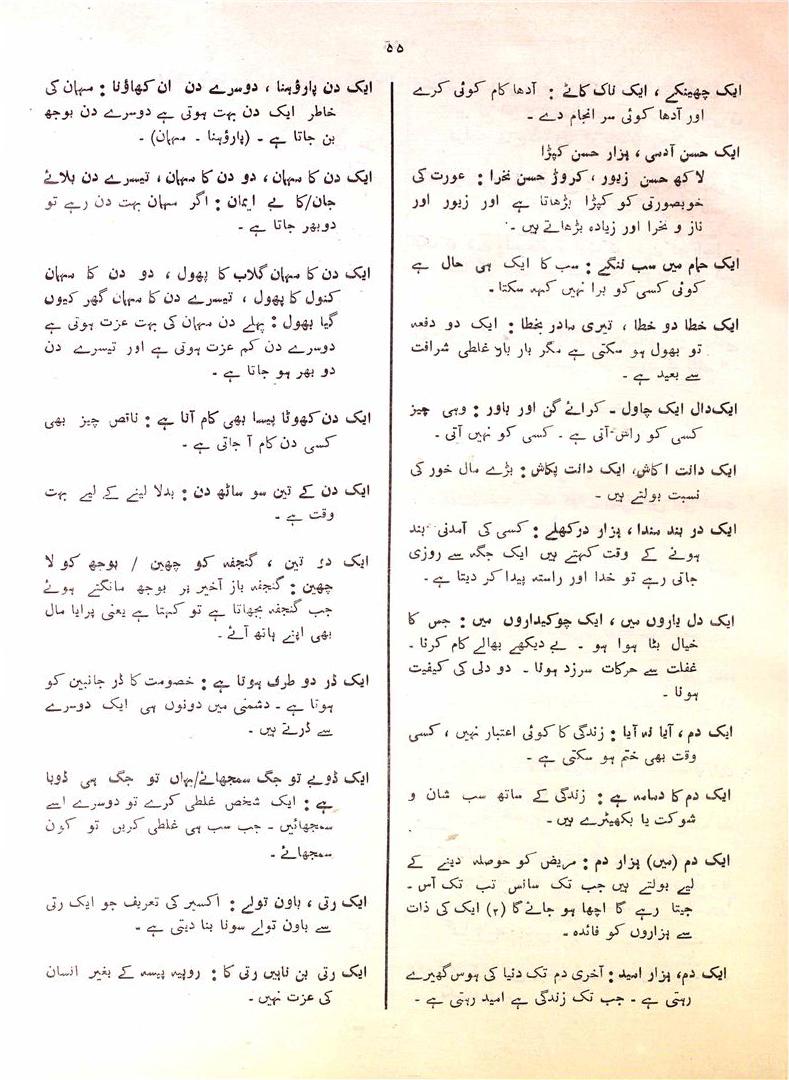 ۵۵
ایک چھینکے ، ایک ناک کاٹے : آدھا کام کوئی کرے
اور آدھا کوئی سر انجام دے ۔
ایک حسن آدمی ، ہزار حسن کپڑا
لاکھ حسن زیور ، کروڑ حسن نخرا : عورت کی
خوبصورتی کو کپڑا بڑھاتا ہے اور زیور اور
ناز و نخرا اور زیادہ بڑھاتے ہیں ۔
ایک حمام میں سب ننگے : سب کا ایک ہی حال ہے
کوئی کسی کو برا نہیں کہہ سکتا ۔
ایک خطا دو خطا ، تیری مادر بخطا : ایک دو دفعہ
تو بھول ہو سکتی ہے مگر بار بار غلطی شرافت
سے بعید ہے ۔
ایک دال ایک چاول ۔ کرائے گن اور باور : وہی چیز
کسی کو راس آتی ہے ۔ کسی کو نہیں آتی ۔
ایک دانت اکاش، ایک دانت پکاش : بڑے مال خور کی
نسبت بولتے ہیں ۔
ایک در بند مندا ، ہزار درکھلے : کسی کی آمدنی بند
ہونے کے وقت کہتے ہیں ایک جگہ سے روزی
جاتی رہے تو خدا اور راستہ پیدا کر دیتا ہے ۔
ایک دل یاروں میں ، ایک چوکیداروں میں : جس کا
خیال بٹا ہوا ہو ۔ بے دیکھے بھالے کام کرنا ۔
غفلت سے حرکات سرزد ہونا ۔ دو دلی کی کیفیت
ہونا ۔
ایک دم ، آیا نہ آیا : زندگی کا کوئی اعتبار نہیں ، کسی
وقت بھی ختم ہو سکتی ہے ۔
ایک دم کا دمامہ ہے : زندگی کے ساتھ سب شان و
شوکت یا بکھیڑے ہیں ۔
ایک دم (میں) ہزار دم : مریض کو حوصلہ دینے کے
لیے بولتے ہیں جب تک سانس تب تک آس ۔
جیتا رہے گا اچھا ہو جائے گا (۲) ایک کی ذات
سے ہزاروں کو فائدہ ۔
ایک دم، ہزار امید : آخری دم تک دنیا کی ہوس گھیرے
رہتی ہے ۔ جب تک زندگی ہے امید رہتی ہے ۔
ایک دن پاروٗہنا ، دوسرے دن ان کھاوٗنا : مہمان کی
خاطر ایک دن بہت ہوتی ہے دوسرے دن بوجھ
بن جاتا ہے ۔ (پاروٗہنا ۔ مہمان) ۔
ایک دن کا مہمان ، دو دن کا مہمان ، تیسرے دن بلائے
جان/کا بے ایمان : اگر مہمان بہت دن رہے تو
دوبھر جاتا ہے ۔
ایک دن کا مہمان گلاب کا پھول ، دو دن کا مہمان
کنول کا پھول ، تیسرے دن کا مہمان گھر کیوں
گیا بھول : پہلے دن مہمان کی بہت عزت ہوتی ہے
دوسرے دن کم عزت ہوتی ہے اور تیسرے دن
دو بھر ہو جاتا ہے ۔
ایک دن کھوٹا پیسا بھی کام آتا ہے : ناقص چیز بھی
کسی دن کام آ جاتی ہے ۔
ایک دن کے تین سو ساٹھ دن : بدلا لینے کے لیے بہت
وقت ہے ۔
ایک دو تین ، گنجفہ کو چھین / بوجھ کو لا
چھین : گنجفہ باز آخیر پر بوجھ مانگتے ہوئے
جب گنجفہ بجھاتا ہے تو کہتا ہے یعنی پرایا مال
بھی اپنے ہاتھ آئے ۔
ایک ڈر دو طرف ہوتا ہے : خصومت کا ڈر جانبین کو
ہوتا ہے ۔ دشمنی میں دونوں ہی ایک دوسرے
سے ڈرتے ہیں ۔
ایک ڈوبے تو جگ سمجھائے/یہاں تو جگ ہی ڈوبا
ہے : ایک شخص غلطی کرے تو دوسرے اسے
سمجھائیں ۔ جب سب ہی غلطی کریں تو کون
سمجھائے ۔
ایک رتی ، باون تولے : اکسیر کی تعریف جو ایک رتی
سے باون تولے سونا بنا دیتی ہے ۔
ایک رتی بن ناہیں رتی کا : روپیہ پیسہ کے بغیر انسان
کی عزت نہیں ۔